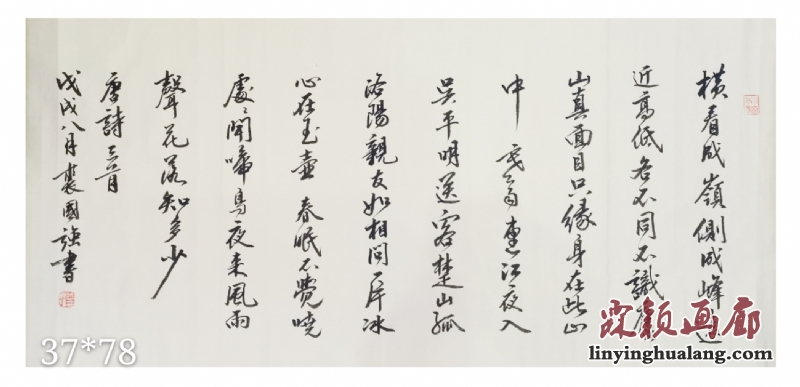 橫看成嶺側成峰遠
近高低各不同不識廬
山真面目只緣身在此山
中 寒雨連江夜入
吳平明送客楚山孤
洛陽親友如相問一片冰
心在玉壺 春眠不覺曉
處〻聞啼鳥夜來風雨
聲花落知多少
唐詩三首
戊戌八月裘國強書
37*78
霖颖画廊
linyinghualang.com